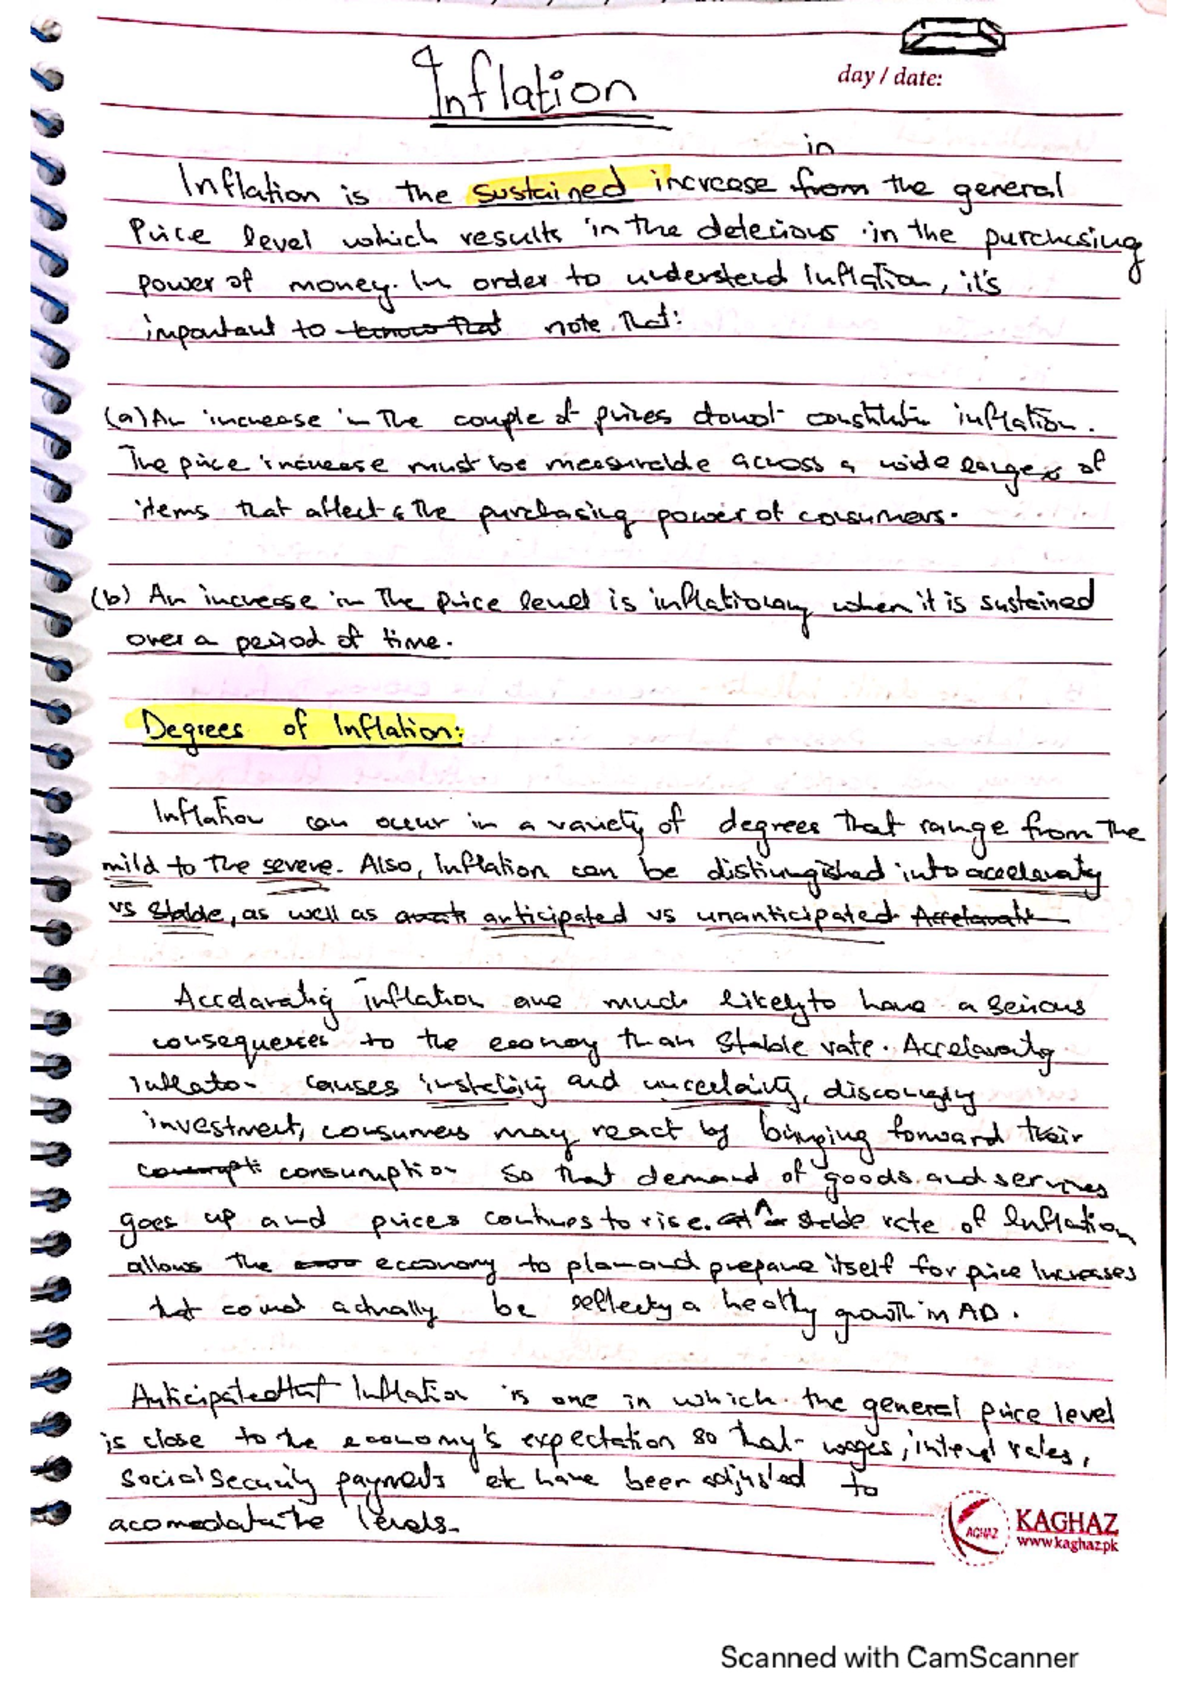 Inflation
day / date:
in
Inflation is the sustained increase from the general
Price level which results in the deterious in the purchasing
power of money. In order to understand Inflation, it's
important to know that note that:
(a) An increase in the couple of prices donot constitute inflation.
The price increase must be measurable across a wide range of
items that affects the purchasing power of consumers.
(b) An increase in the price level is inflationary when it is sustained
over a period of time.
Degrees of Inflation:
Inflation can occur in a variety of degrees that range from the
mild to the severe. Also, Inflation can be distinguished into accelerating
vs Stable, as well as anticipated vs unanticipated
Accelarating inflation are much likely to have a serious
consequences to the economy than Stable rate. Accelarating
inflation causes instability and uncertainty, discouraging
investment, consumers may react by bringing forward their
consumption so that demand of goods and services
goes up and prices continues to rise. A stable rate of Inflation
allows the economy to plan and prepare itself for price Increases
that could actually be reflecting a healthy growth in AD.
Anticipated Inflation is one in which the general price level
is close to the economy's expectation so that wages, interest rates,
Social Security payments etc have been adjusted to
acomodate the levels.
KAGHAZ
www.kaghaz.pk
Scanned with CamScanner